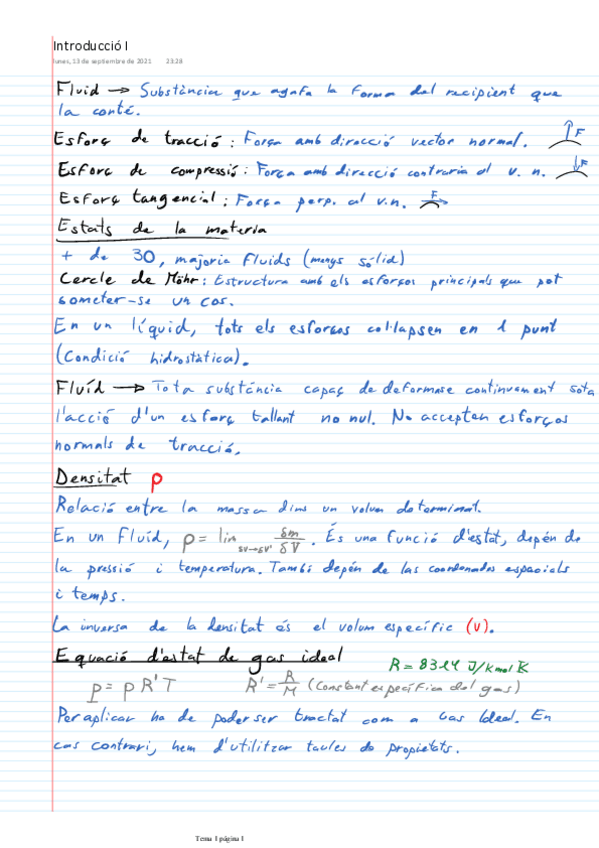 Introducció I
lunes, 13 de septiembre de 2021 23:28
Fluid → Substància que agafa la forma del recipient que
la conté.
Esforç de tracció: Força amb direcció vector normal. F
Esforç de compressió: Força amb direcció contraria al v. n. F
Esforç tangencial: Força perp. al v.n. F
Estats de la materia
+ de 30, majoria fluids (menys sólid)
Cercle de Möhr: Estructura amb els esforços principals que pot
someter-se un cos.
En un líquid, tots els esforços col·lapsen en 1 punt
(Condició hidrostàtica).
Fluíd → Tota substáncia capaç de deformase continuament sota
l'acció d'un esforç tallant no nul. No accepten esforços
normals de tracció.
Densitat ρ
Relació entre la massa dins un volum determinat.
En un Fluid, ρ = lim δV→δV' δm/δV. És una funció d'estat, depén de
la pressió i temperatura. També depén de las coordenades espacials
i temps.
La inversa de la densitat és el volum específic (v).
Equació d'estat de gas ideal R = 8314 J/Kmol K
p = ρ R' T R' = R/M (Constant específica del gas)
Per aplicar ha de poder ser tractat com a Gas Ideal. En
cas contrari, hem d'utilitzar taules de propietats.
Tema 1 página 1